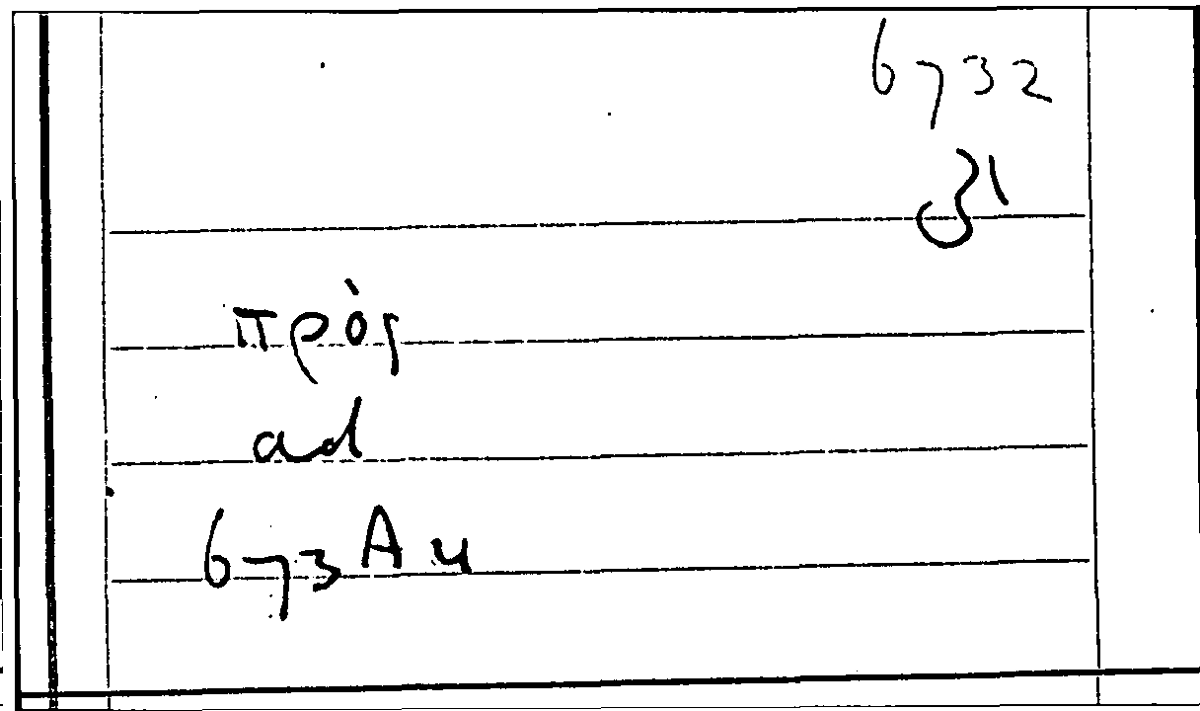 6732
πρὸς
ad
673A4